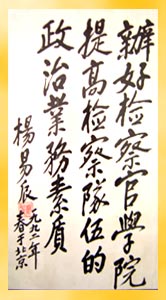 辦好检察官學院
提高检察隊伍的
政治業務素质
楊易辰
一九九二年
春于北京